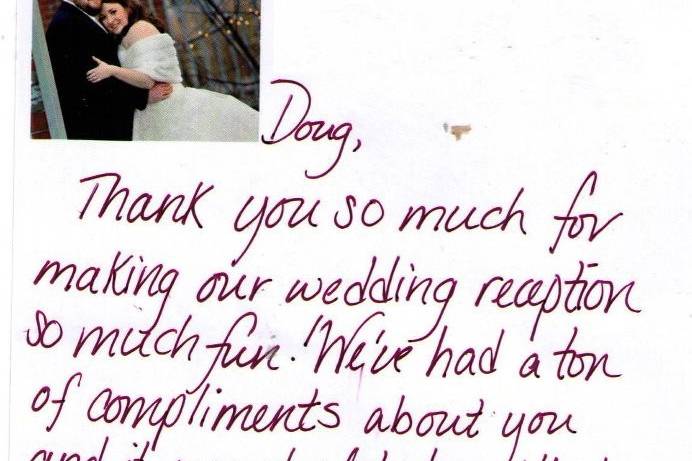 Doug,
Thank you so much for
making our wedding reception
so much fun! We've had a ton
of compliments about you
and it